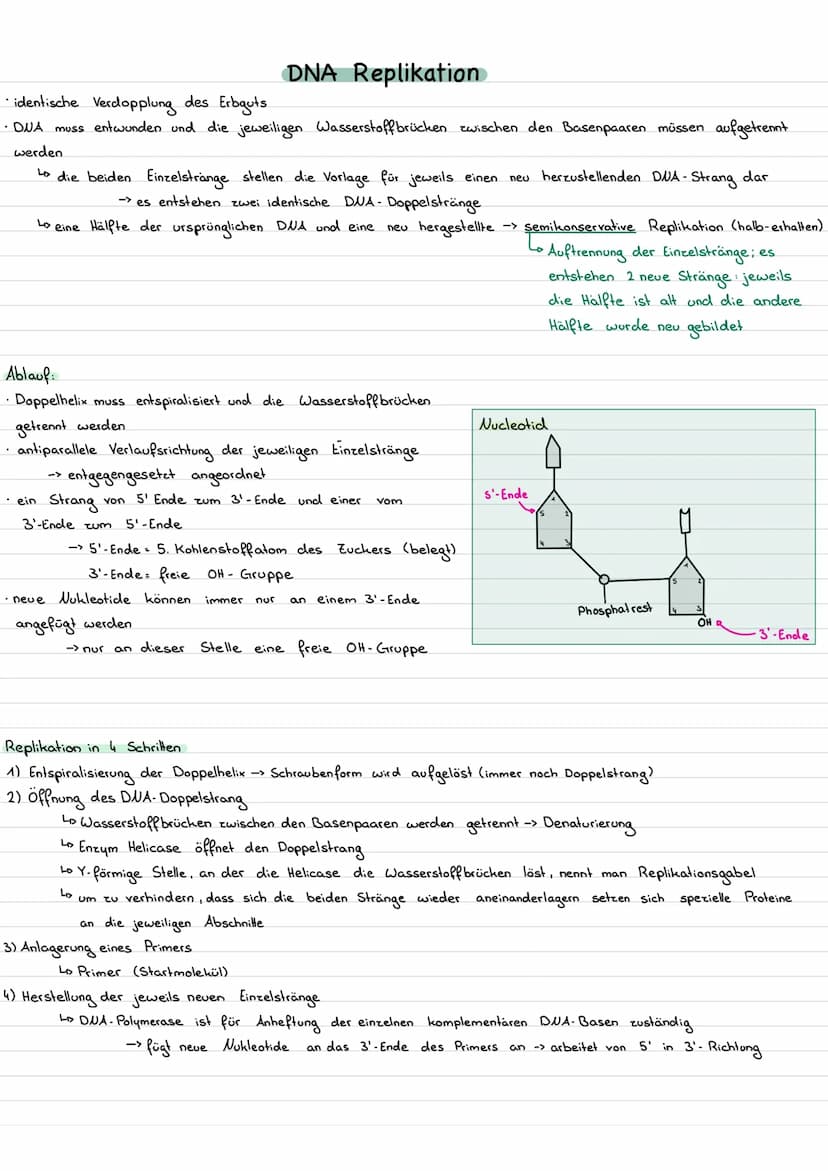 DNA Replikation
· identische Verdopplung des Erbguts
· DNA muss entwunden und die jeweiligen Wasserstoffbrücken zwischen den Basenpaaren müssen aufgetrennt
werden
↳ die beiden Einzelstränge stellen die Vorlage für jeweils einen neu herzustellenden DNA-Strang dar
→ es entstehen zwei identische DNA-Doppelstränge
↳ eine Hälfte der ursprünglichen DNA und eine neu hergestellte → semikonservative Replikation (halb-erhalten)
↳ Auftrennung der Einzelstränge; es
entstehen 2 neue Stränge: jeweils
die Hälfte ist alt und die andere
Hälfte wurde neu gebildet
Ablauf:
· Doppelhelix muss entspiralisiert und die Wasserstoffbrücken
getrennt werden
· antiparallele Verlaufsrichtung der jeweiligen Einzelstränge
→ entgegengesetzt angeordnet
· ein Strang von 5' Ende zum 3'-Ende und einer vom
3'-Ende zum 5'-Ende
→ 5'-Ende = 5. Kohlenstoffatom des Zuckers (belegt)
3'-Ende = freie OH-Gruppe
· neue Nukleotide können immer nur an einem 3'-Ende
angefügt werden
→ nur an dieser Stelle eine freie OH-Gruppe
Nucleotid
5'-Ende
1
5 2
4 3
Phosphatrest
1
5 2
4 3
OH
3'-Ende
Replikation in 4 Schritten
1) Entspiralisierung der Doppelhelix → Schraubenform wird aufgelöst (immer noch Doppelstrang)
2) Öffnung des DNA-Doppelstrang
↳ Wasserstoffbrücken zwischen den Basenpaaren werden getrennt → Denaturierung
↳ Enzym Helicase öffnet den Doppelstrang
↳ Y-förmige Stelle, an der die Helicase die Wasserstoffbrücken löst, nennt man Replikationsgabel
↳ um zu verhindern, dass sich die beiden Stränge wieder aneinanderlagern setzen sich spezielle Proteine
an die jeweiligen Abschnitte
3) Anlagerung eines Primers
↳ Primer (Startmolekül)
4) Herstellung der jeweils neuen Einzelstränge
↳ DNA-Polymerase ist für Anheftung der einzelnen komplementären DNA-Basen zuständig
→ fügt neue Nukleotide an das 3'-Ende des Primers an → arbeitet von 5' in 3'-Richtung